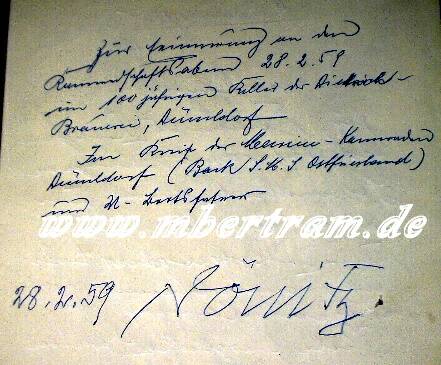 Zur Erinnerung an den
Kameradschaftsabend 28.2.59
im 100 jährigen Keller der Dietrich-
Brauerei, Düsseldorf
Im Kreise der Marine-Kameraden
Düsseldorf (Back S.M.S Ostfriesland)
und U-Bootsfahrer
www.mbertram.de
28.2.59 Dönitz